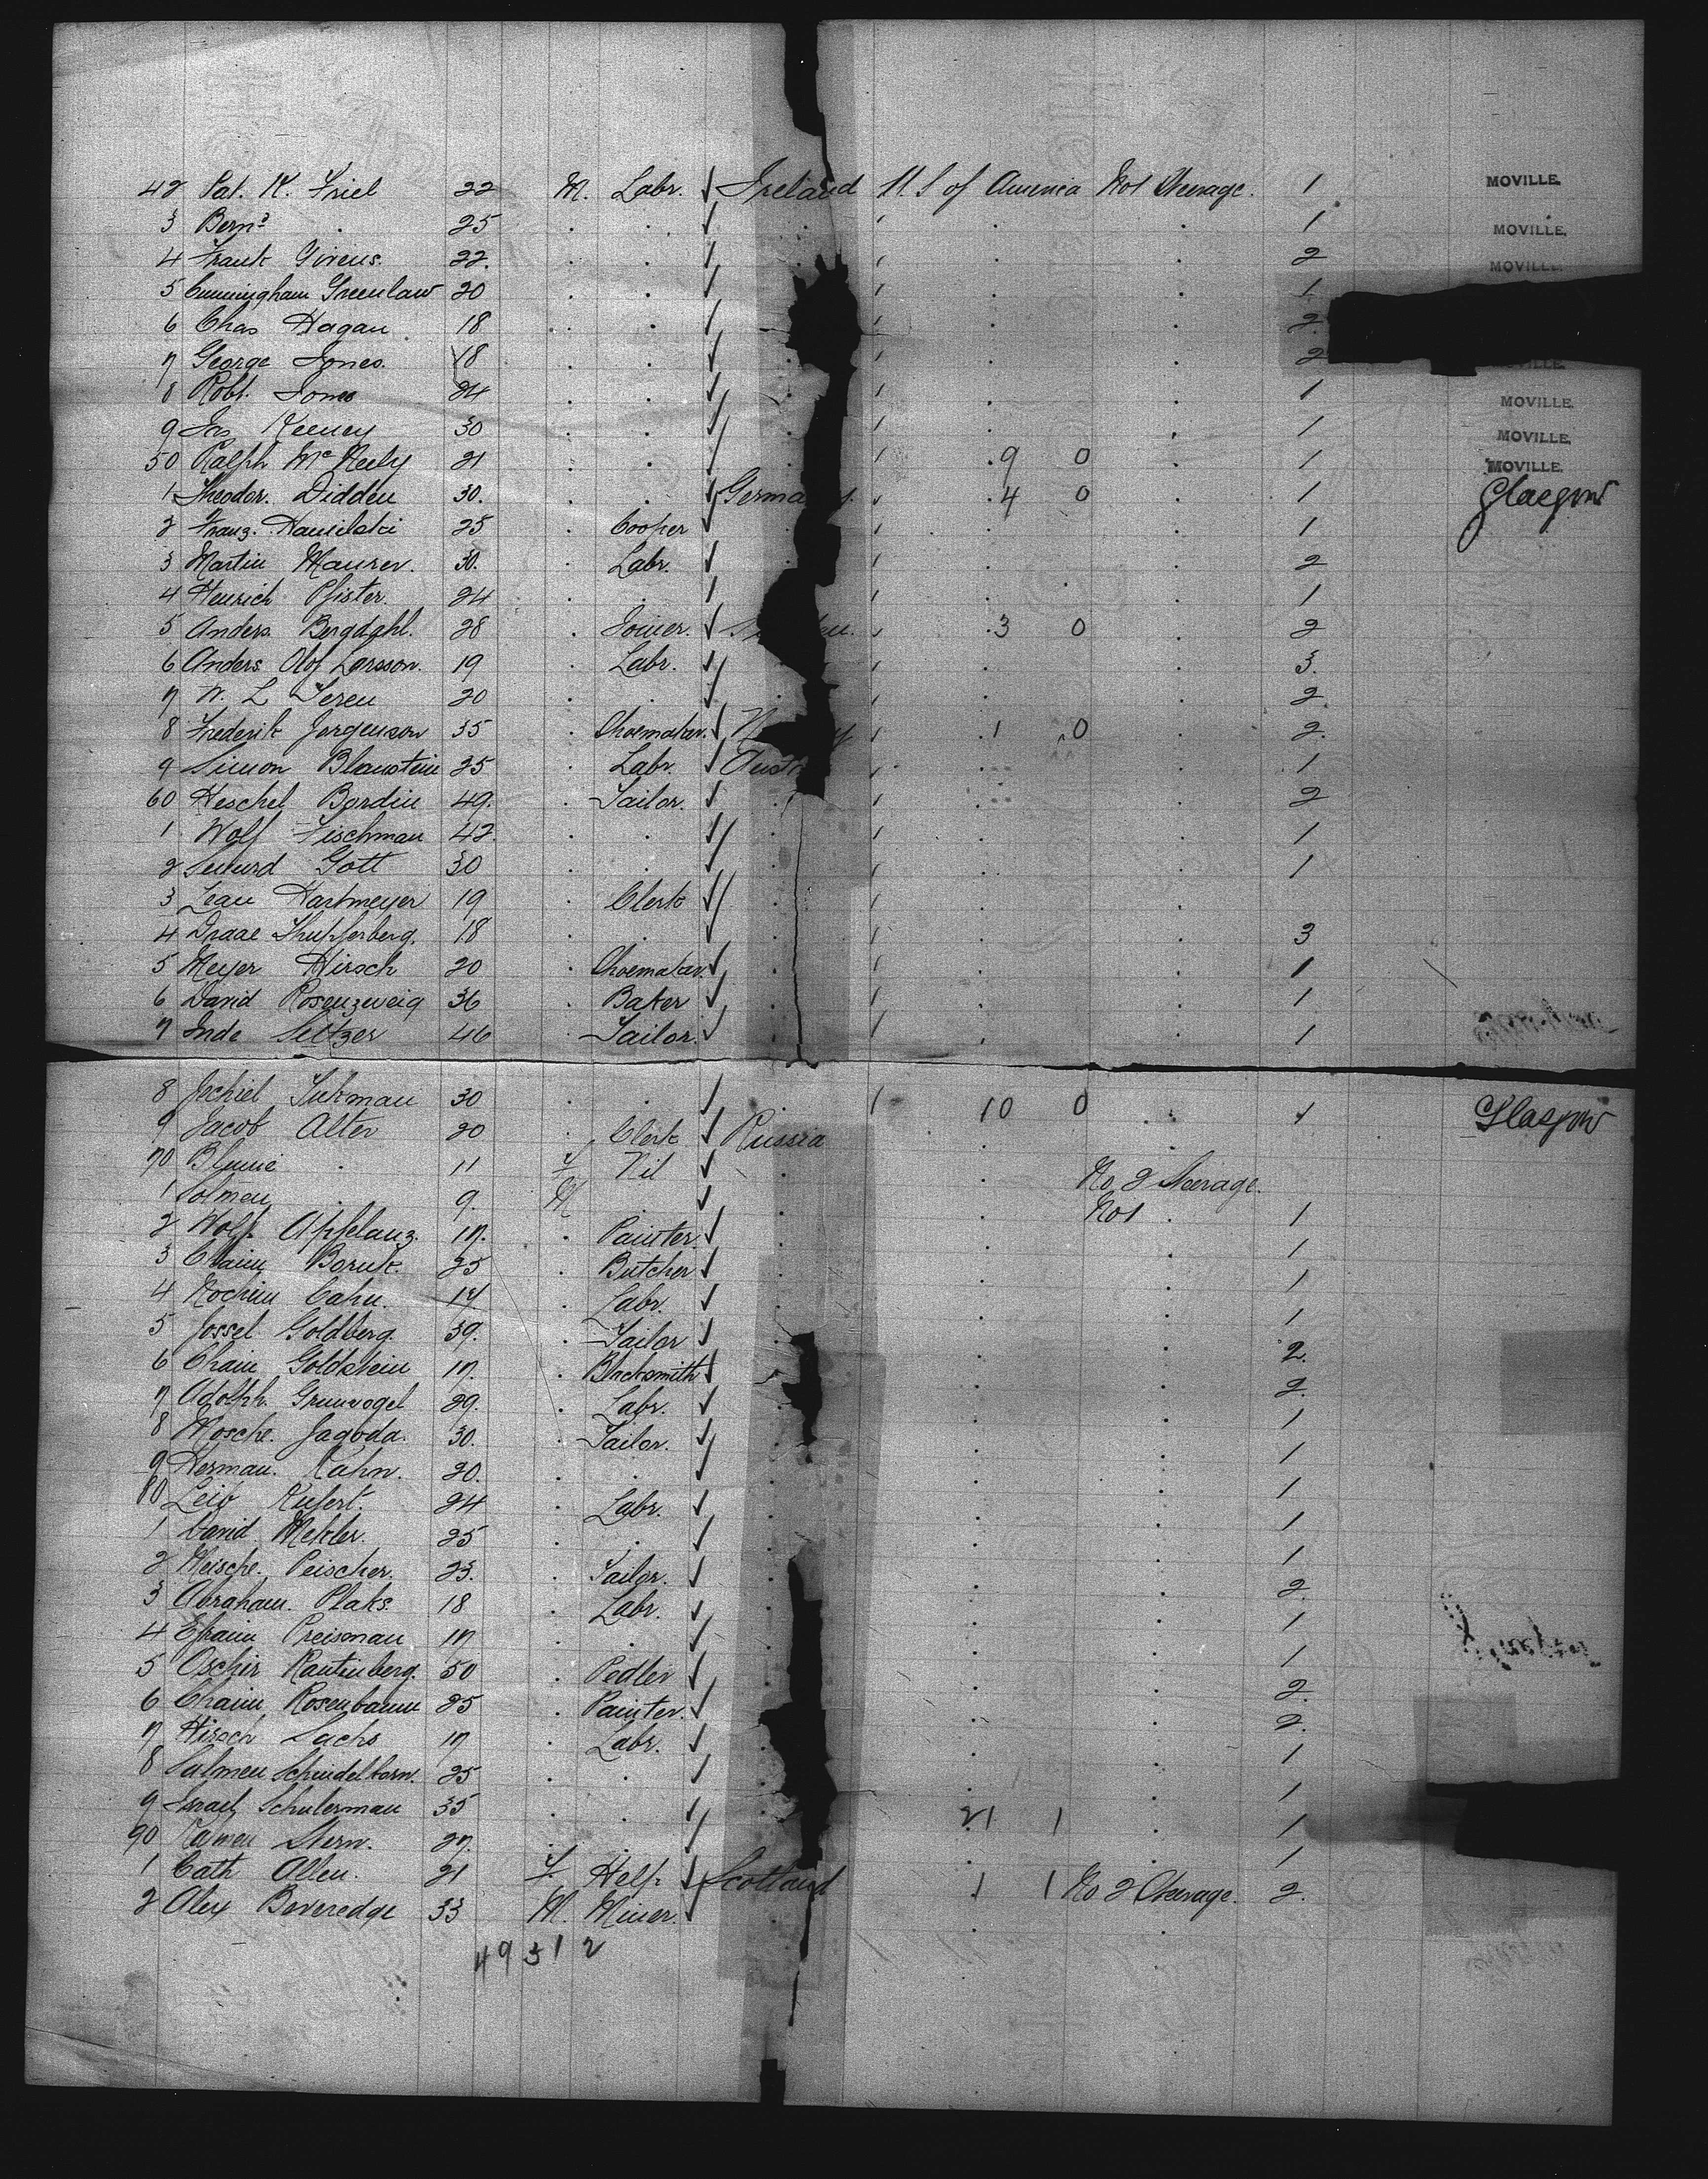 42 Pat. K. Friel 22 M. Labr. ✓ Ireland U.S of America No1 Steerage. 1 MOVILLE.
3 Bernd . 25 . . ✓ . . 1 MOVILLE.
4 Frank Givens. 22. . . ✓ . . 2 MOVILLE.
5 Cunningham Greenlaw 20 . . ✓ . . 1
6 Chas Hagan 18 . . ✓ . . 2
7 George Jones. 18 . . ✓ . . 2
8 Robt. Jones 24 . . ✓ . . 1 MOVILLE.
9 Jas Keeney 30 . . ✓ . . 1 MOVILLE.
50 Ralph McNeely 21 . . ✓ 9 0 . 1 MOVILLE.
1 Theodor. Didden 30. . . ✓ Germany. 4 0 . 1 Glasgow
2 Franz. 25 . Cooper ✓ . . 1
3 Martin Maurer. 30. . Labr. ✓ . . 2
4 Heinrich Pfister. 24 . . ✓ . . 1
5 Anders. Bergdahl. 28 . Joiner. ✓ 3 0 . 2
6 Anders Olof Larsson. 19 . Labr. ✓ . . 3.
7 W. L 20 . . ✓ . . 2.
8 Frederik Jorgenson 35 . Shoemaker. ✓ N y 1 0 . 2.
9 Simon Blaustein 25 . Labr. ✓ Aust . . 1
60 Heschel Bordin 49. . Tailor. ✓ . . 2
1 Wolf Fischman 42. . . ✓ . . 1
2 Gott 30 . . ✓ . . 1
3 Hartmeyer 19 . Clerk ✓ . .
4 18 . . ✓ . . 3
5 Meyer Hirsch 20 . Shoemaker. ✓ . . 1
6 David Rosenzweig 36 . Baker ✓ . . 1
7 Seltzer 46 . Tailor. ✓ . . 1
8 Jechiel 30 . . ✓ 10 0 . 1 Glasgow
9 Jacob Alter 20 . Clerk ✓ Russia
70 Blume . 11 F Nil ✓ . No 2 Steerage.
1 Solmen . 9. M . ✓ . No1 . 1
2 Wolf. Apfelanz. 17. . Painter. ✓ . . 1
3 Chaim Boruk. 25 . Butcher ✓ . . 1
4 Nochim Cahn. 17 . Labr. ✓ . . 1
5 Jossel Goldberg. 39. . Tailor ✓ . . 2.
6 Chaim Goldstein 17. . Blacksmith ✓ . . 2.
7 Adolph. Grunvogel 29. . Labr. ✓ . . 1
8 Mosche. Jagoda. 30. . Tailor. ✓ . . 1
9 Herman. Kahn. 20. . . ✓ . . 1
80 Leib Kufert. 24 . Labr. ✓ . . 1
1 David Mekler. 25 . . ✓ . . 1
2 Meische. Peischer. 23. . Tailor. ✓ . . 2.
3 Abraham. Plaks. 18 . Labr. ✓ . . 1
4 Efraim Preisman 17 . . ✓ . . 1
5 Oschir Rautenberg. 50 . Pedler ✓ . . 2.
6 Chaim Rosenbaum 25 . Painter. ✓ . . 2.
7 Hirsch Sachs 17 . Labr. ✓ . . 1
8 Salmen Scheidelkorn. 25 . . ✓ . . 1
9 Israel Schulerman 35 . . ✓ 21 1 . 1
90 Stern. 27. . . ✓ . . 1
1 Cath Allen. 21 F. Help ✓ Scotland 1 1 No 2 Steerage. 2.
2 Alex Beveredge 33 M. Miner. ✓
49 3 1 2